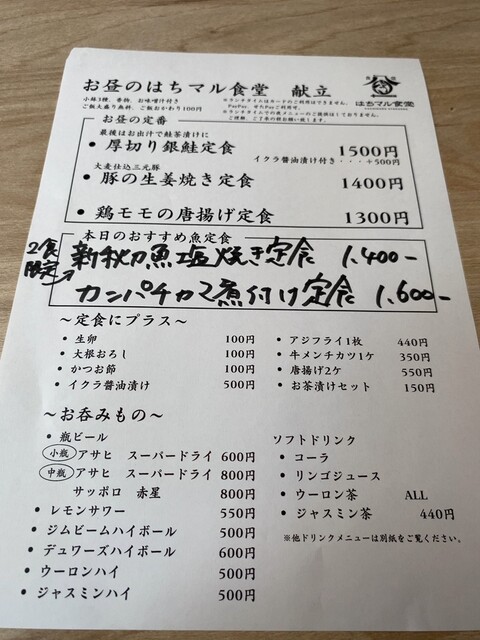 お昼のはちマル食堂 献立
小鉢3種、香物、お味噌汁付き
ご飯大盛り無料、ご飯おかわり100円
※ランチタイムはカードのご利用はできません。
はちマル食堂
お昼の定番
最後はお出汁で鮭茶漬けに
• 厚切り銀鮭定食 1500円
イクラ醤油漬け付き・・・+500円
大麦仕込三元豚
• 豚の生姜焼き定食 1400円
• 鶏モモの唐揚げ定食 1300円
本日のおすすめ魚定食
2食限定→
新秋刀魚塩焼き定食 1,400-
カンパチカマ煮付け定食 1,600-
～定食にプラス～
• 生卵 100円
• 大根おろし 100円
• かつお節 100円
• イクラ醤油漬け 500円
• アジフライ1枚 440円
• 牛メンチカツ1ケ 350円
• 唐揚げ2ケ 550円
• お茶漬けセット 150円
～お呑みもの～
• 瓶ビール
小瓶 アサヒ スーパードライ 600円
中瓶 アサヒ スーパードライ 800円
サッポロ 赤星 800円
• レモンサワー 550円
• ジムビームハイボール 500円
• デュワーズハイボール 600円
• ウーロンハイ 500円
• ジャスミンハイ 500円
ソフトドリンク
• コーラ
• リンゴジュース
• ウーロン茶 ALL
• ジャスミン茶 440円
※他ドリンクメニューは別紙をご覧ください。